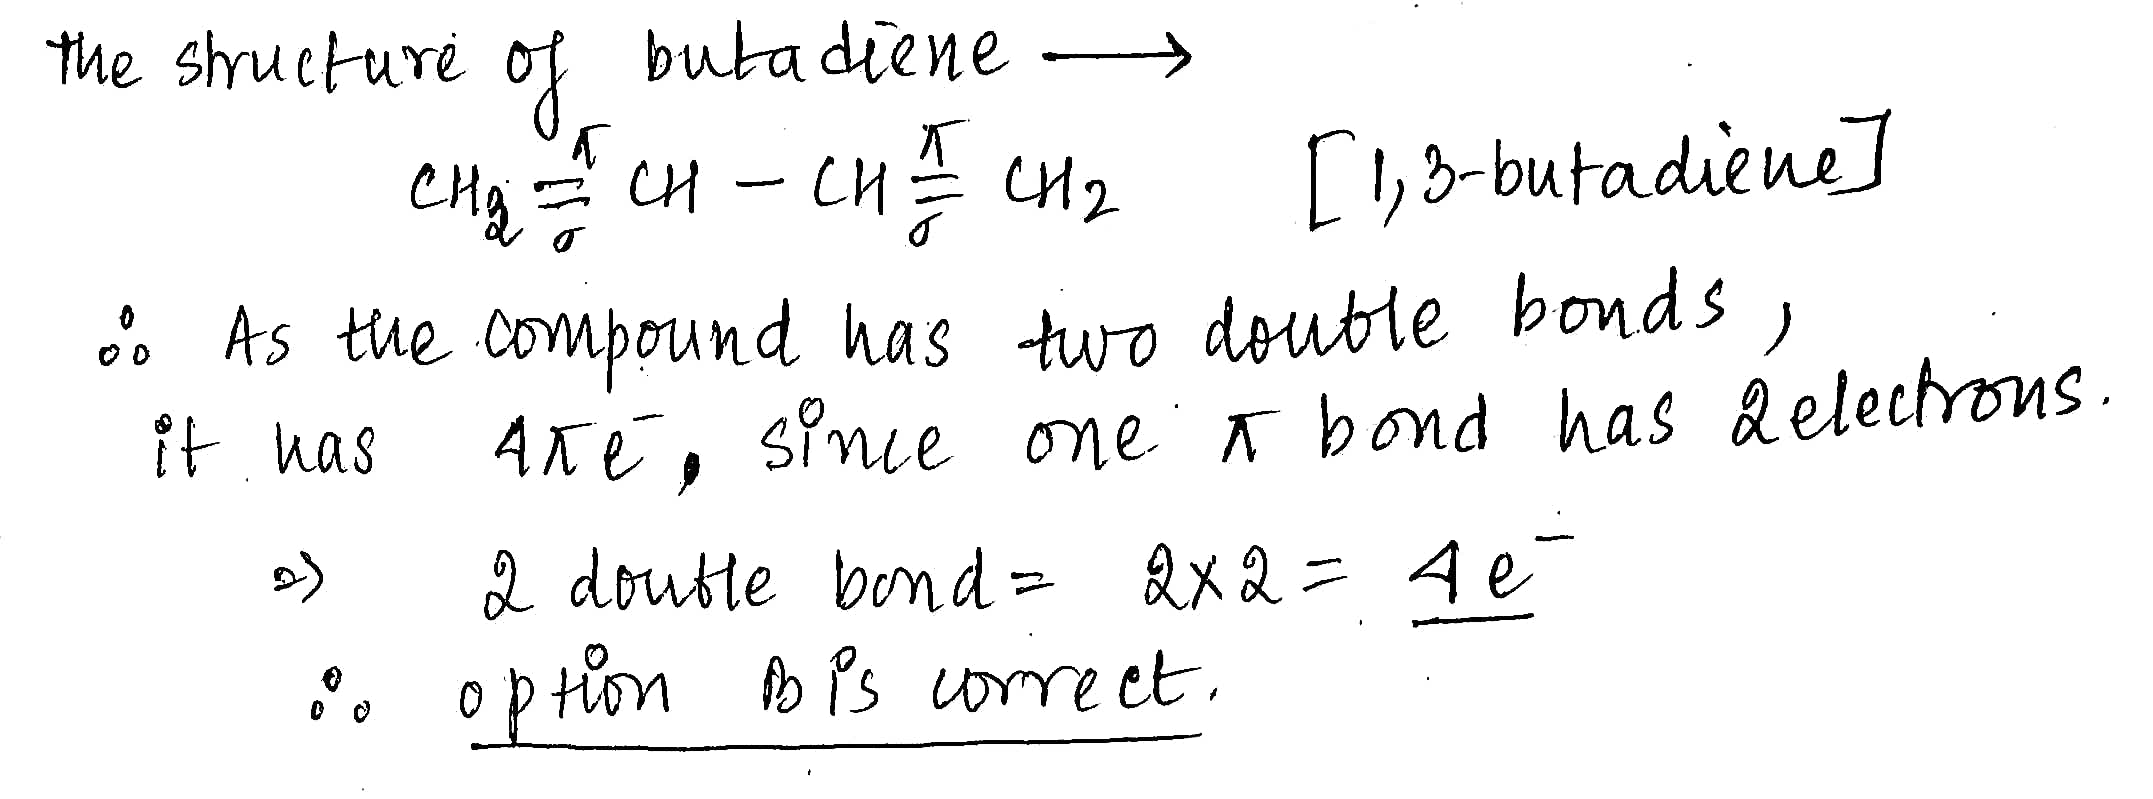 The structure of butadiene ⟶
CH2 = CH - CH = CH2 [1,3-butadiene]
π π
σ σ
∴ As the compound has two double bonds,
it has 4πe⁻, since one π bond has 2 electrons.
⇒ 2 double bond = 2×2 = 4e⁻
∴ option B is correct.